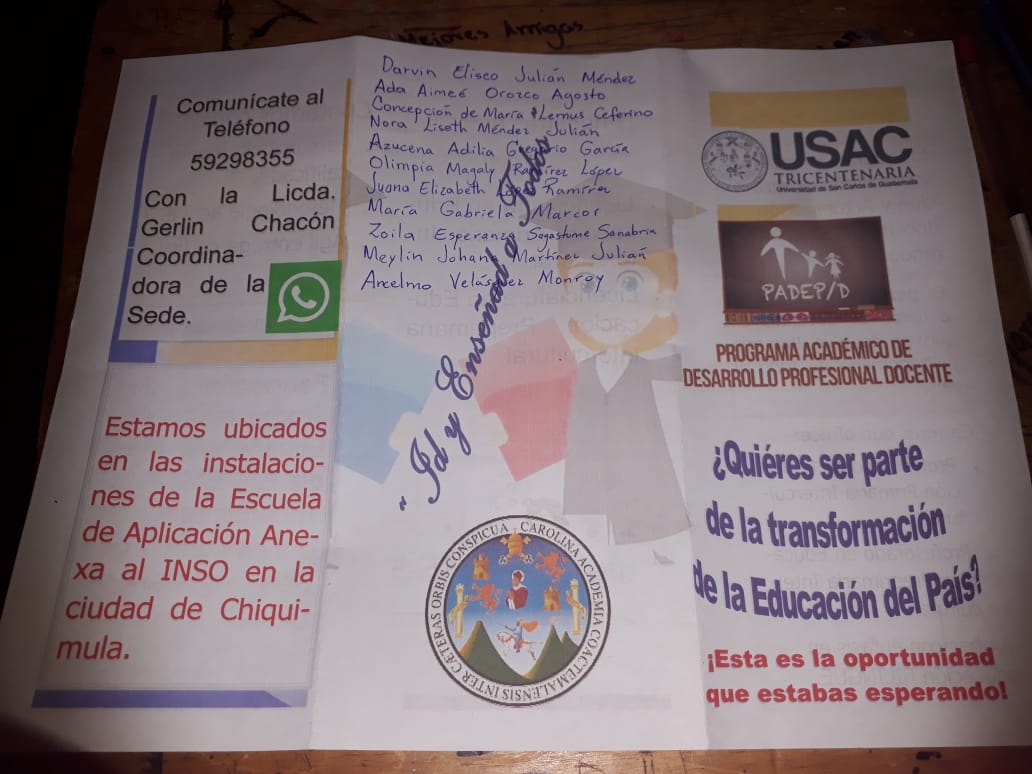 Mejores Amigos
Comunícate al
Teléfono
59298355
Con la Licda.
Gerlin Chacón
Coordina-
dora de la
Sede.
Estamos ubicados
en las instalacio-
nes de la Escuela
de Aplicación Ane-
xa al INSO en la
ciudad de Chiqui-
mula.
Darvin Eliseo Julián Méndez
Ada Aimeé Orozco Agosto
Concepción de María Lemus Ceferino
Nora Liseth Méndez Julián
Azucena Adilia Gregorio García
Olimpia Magaly Ramírez López
Juana Elizabeth López Ramírez
María Gabriela Marcos
Zoila Esperanza Sagastume Sanabria
Meylin Johana Martínez Julián
Ancelmo Velásquez Monroy
"Id y Enseñad a Todos
CAROLINA ACADEMIA COACTEMALENSIS INTER CÆTERAS ORBIS CONSPICUA
USAC
TRICENTENARIA
Universidad de San Carlos de Guatemala
PADEP/D
PROGRAMA ACADÉMICO DE
DESARROLLO PROFESIONAL DOCENTE
¿Quiéres ser parte
de la transformación
de la Educación del País?
¡Esta es la oportunidad
que estabas esperando!